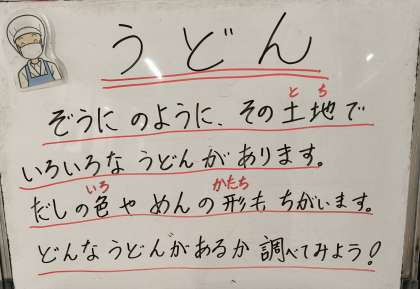 うどん
ぞうにのように、その土地で
とち
いろいろなうどんがあります。
だしの色やめんの形もちがいます。
いろ かたち
どんなうどんがあるか調べてみよう!